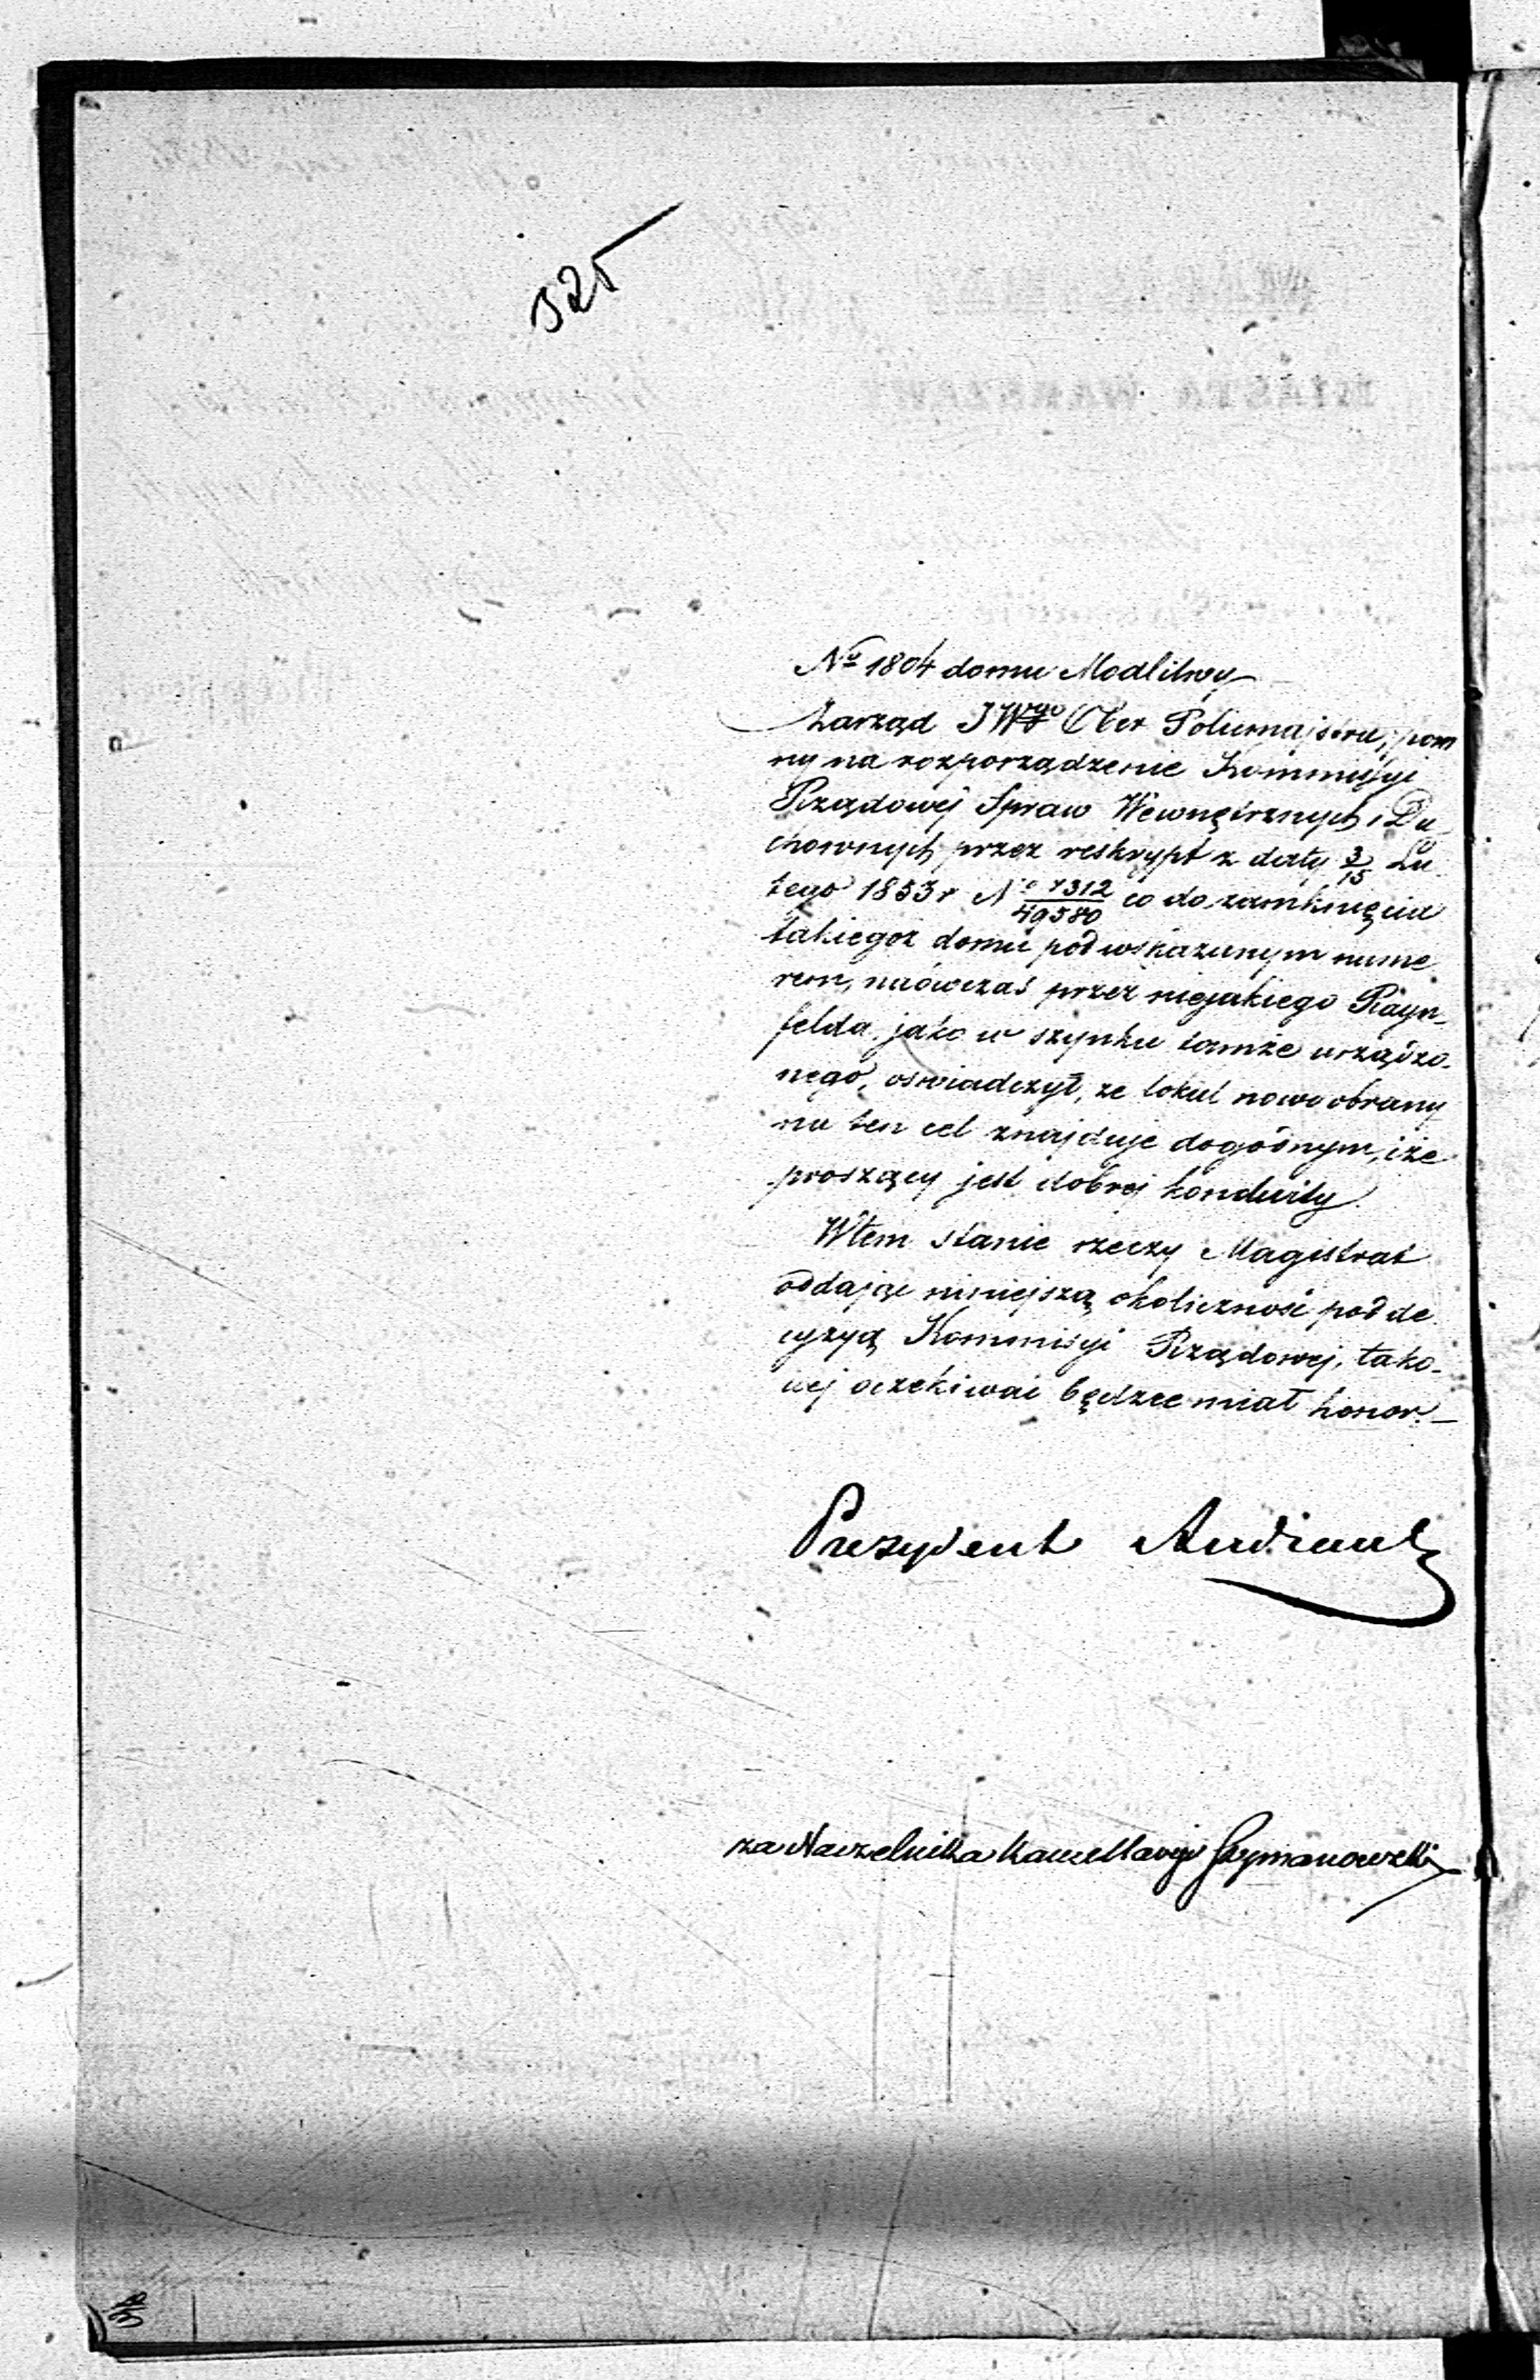 325
No 1804 domu Modlitwy
Zarząd JWgo Ober Policmajstra, pom
ny na rozporządzenie Kommissyi
Rządowej Spraw Wewnętrznych i Du
chownych przez reskrypt z daty 3/15 Lu
tego 1853 r No 7312/49580 co do zamknięcia
takiegoż domu pod wskazanym nume
rem, naówczas przez niejakiego Rayn-
felda, jako w szynku tamże urządzo-
nego, oświadczył, że lokal nowo obrany
na ten cel znajduje dogodnym, i że
proszący jest dobrej konduity.
W tem stanie rzeczy Magistrat
oddając niniejszą okoliczność pod de
cyzyą Kommisyi Rządowej, tako-
wej oczekiwać będzie miał honor. —
Prezydent Andrault
za Naczelnika Kancellaryi Szymanowski